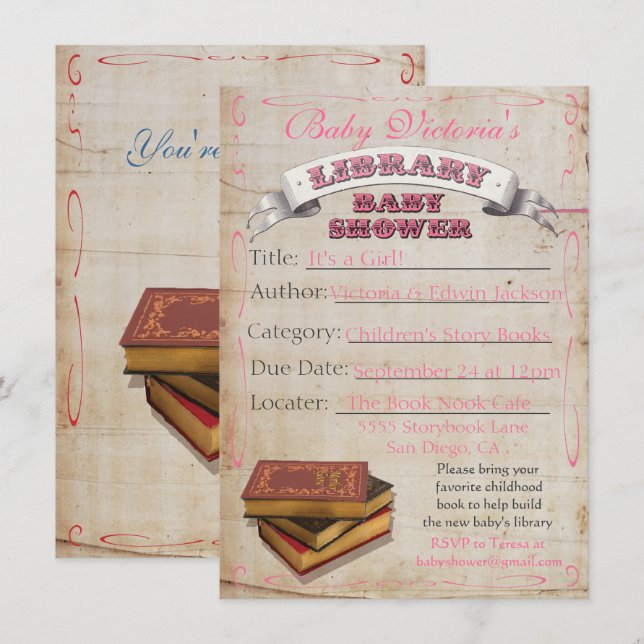 You're
Baby Victoria's
LIBRARY
BABY
SHOWER
Title: It's a Girl!
Author: Victoria & Edwin Jackson
Category: Children's Story Books
Due Date: September 24 at 12pm
Locater: The Book Nook Cafe
5555 Storybook Lane
San Diego, CA
Please bring your
favorite childhood
book to help build
the new baby's library
RSVP to Teresa at
babyshower@gmail.com